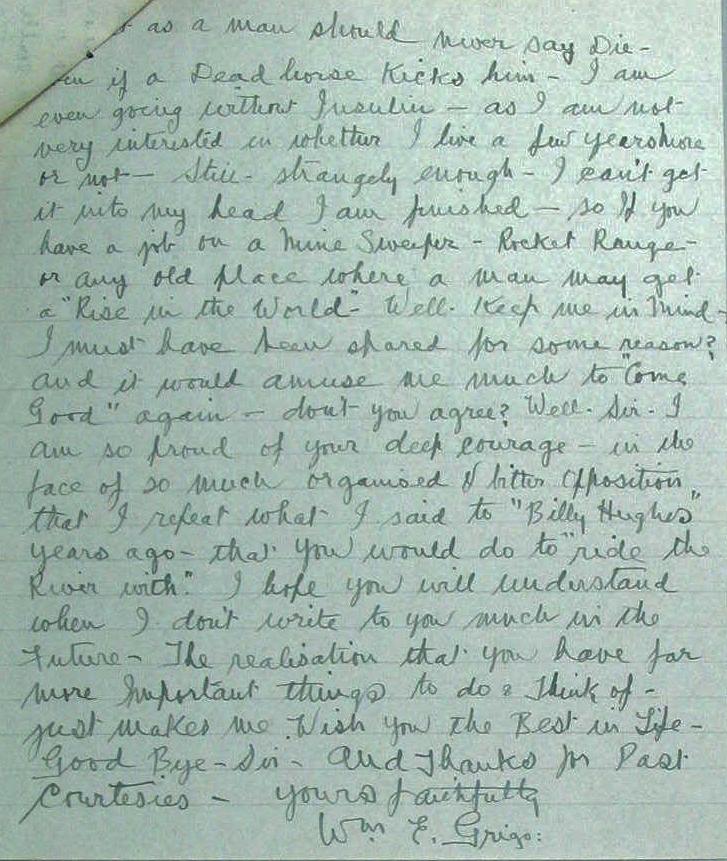 as a man should never say Die -
if a Dead horse Kicks him - I am
even going without Insulin - as I am not
very interested in whether I live a few years more
or not - Still - strangely enough - I can't get
it into my head I am finished - so If you
have a job on a Mine Sweeper - Rocket Range -
or any old place where a man may get
a "Rise in the World" - Well. Keep me in Mind -
I must have been spared for some reason?
and it would amuse me much to "Come
Good" again - don't you agree? Well. Sir. I
am so proud of your deep courage - in the
face of so much organised & bitter Opposition
that I repeat what I said to "Billy Hughes"
years ago - that you would do to "ride the
River with." I hope you will understand
when I don't write to you much in the
Future - The realisation that you have far
more Important things to do & Think of -
just makes me Wish you the Best in Life -
Good Bye - Sir - and Thanks for Past
Courtesies - yours faithfully
Wm E. Grigo: